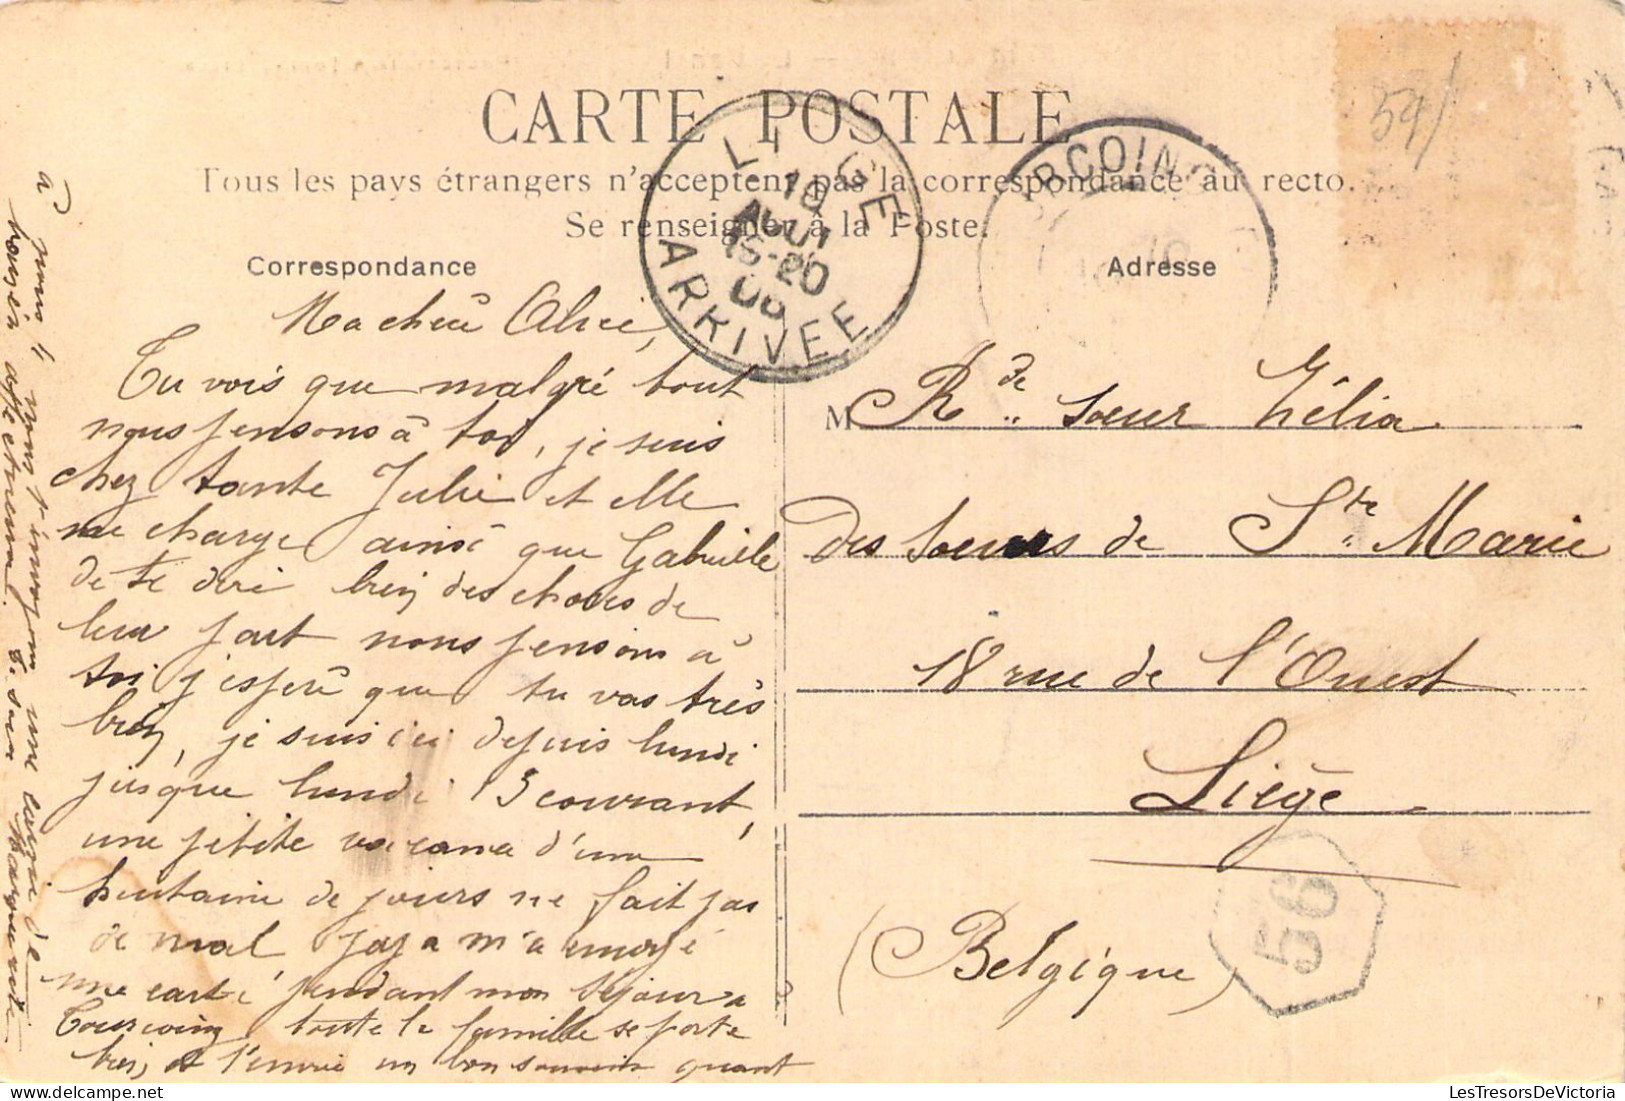 CARTE POSTALE
Tous les pays étrangers n'acceptent pas la correspondance au recto.
Se renseigner à la Poste.
Correspondance
Adresse
LIEGE
10
AOUT
15-20
06
ARRIVEE
RCOING
54/
Ma chère Alice,
Tu vois que malgré tout
nous pensons à toi, je suis
chez tante Julie et elle
me charge ainsi que Gabrielle
de te dire bien des choses de
leur part nous pensons à
toi j'espère que tu vas très
bien, je suis ici depuis lundi
jusque lundi 13 courant,
une petite d'une
huitaine de jours ne fait pas
de mal papa m'a envoyé
une carte pendant mon séjour à
Tourcoing toute la famille se porte
bien et t'envoie un bon souvenir quant
à nous nous t'envoyons une de
baisers affectueux. T. sœur Marguerite
M Rde sœur Zélia
des Sœurs de Ste Marie
18 rue de l'Ouest
Liège
(Belgique)
56
LesTresorsDeVictoria.com